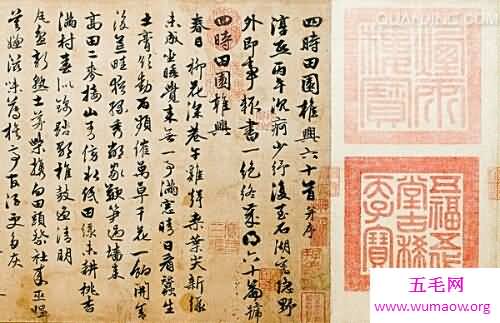 QUANJING.COM
四時田園雜興六十首 并序
淳熙丙午沉疴少紓復至石湖舊隱野
外即事輒書一絕終歲得六十篇號
四時田園雜興
春日 柳花深巷午雞聲桑葉尖新綠
未成坐睡覺來無一事滿窗晴日看蠶生
土膏欲動雨頻催萬草千花一餉開舍
後荒畦猶綠秀鄰家鞭筍過牆來
高田二麥接山青傍水低田綠未耕桃杏
滿村春似錦踏歌椎鼓過清明
老盆初熟杜茅柴攜向田頭祭社來巫媼
莫嫌滋味薄旗亭官酒更多灰
五福五代
堂古稀
天子寶
五毛网
www.wumaow.org